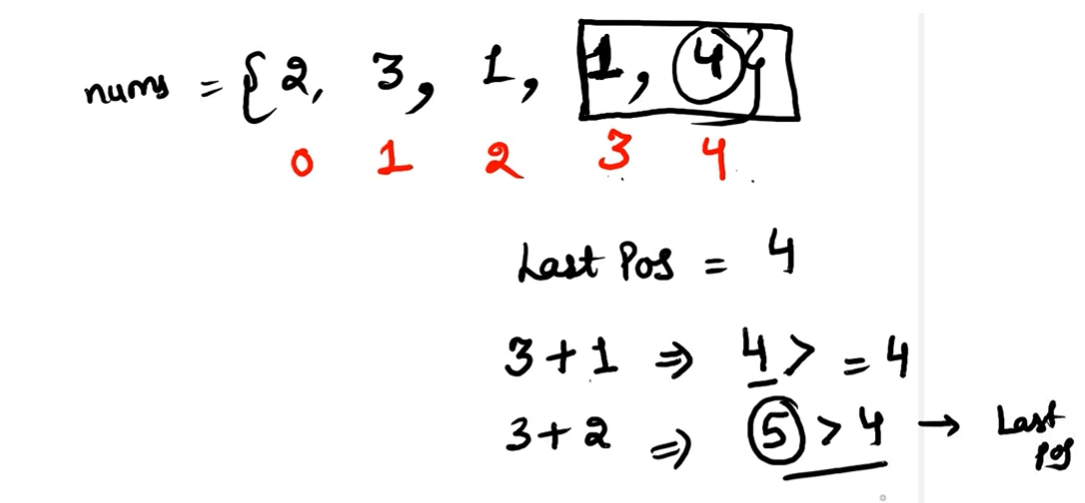 nums = { 2, 3, 1, 1, 4 }
0 1 2 3 4
Last Pos = 4
3 + 1 ⇒ 4 > = 4
3 + 2 ⇒ 5 > 4 → Last Pos